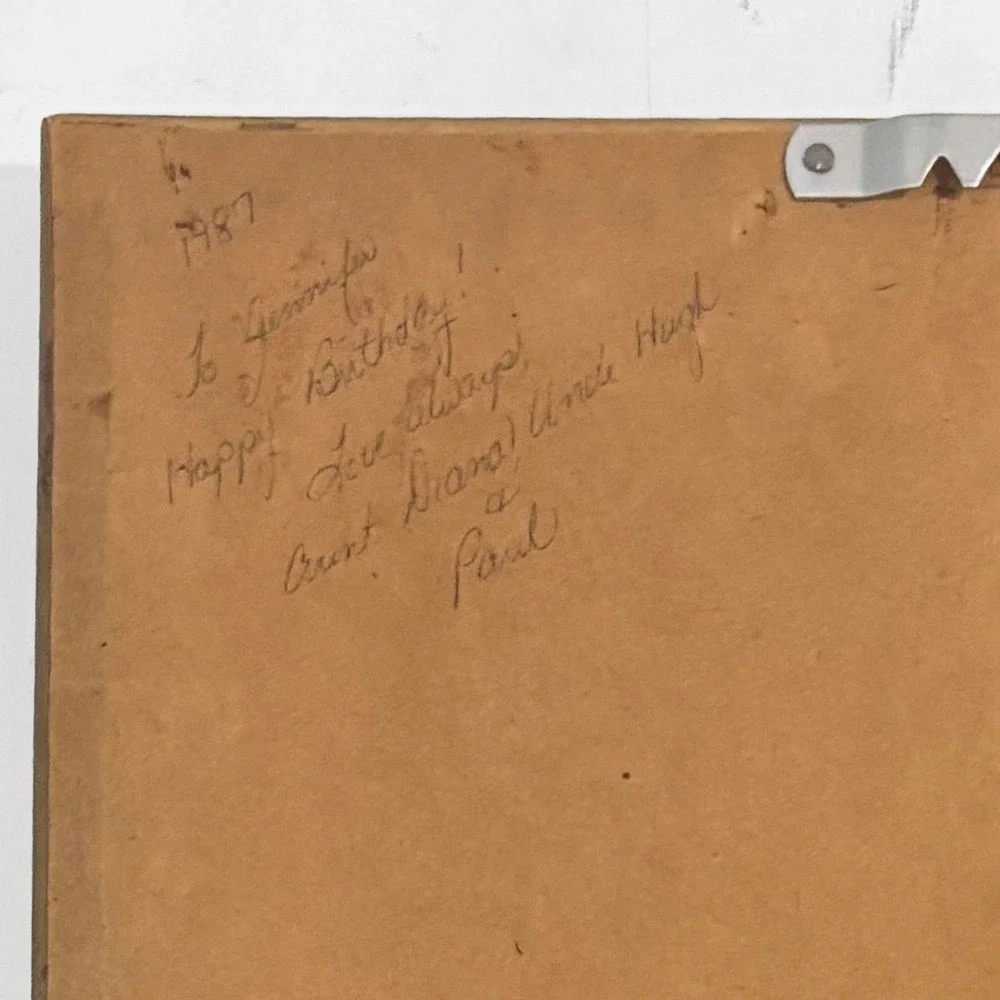 1987
To Jennifer
Happy Birthday!
Love always,
Aunt Diana, Uncle Hugh
&
Paul